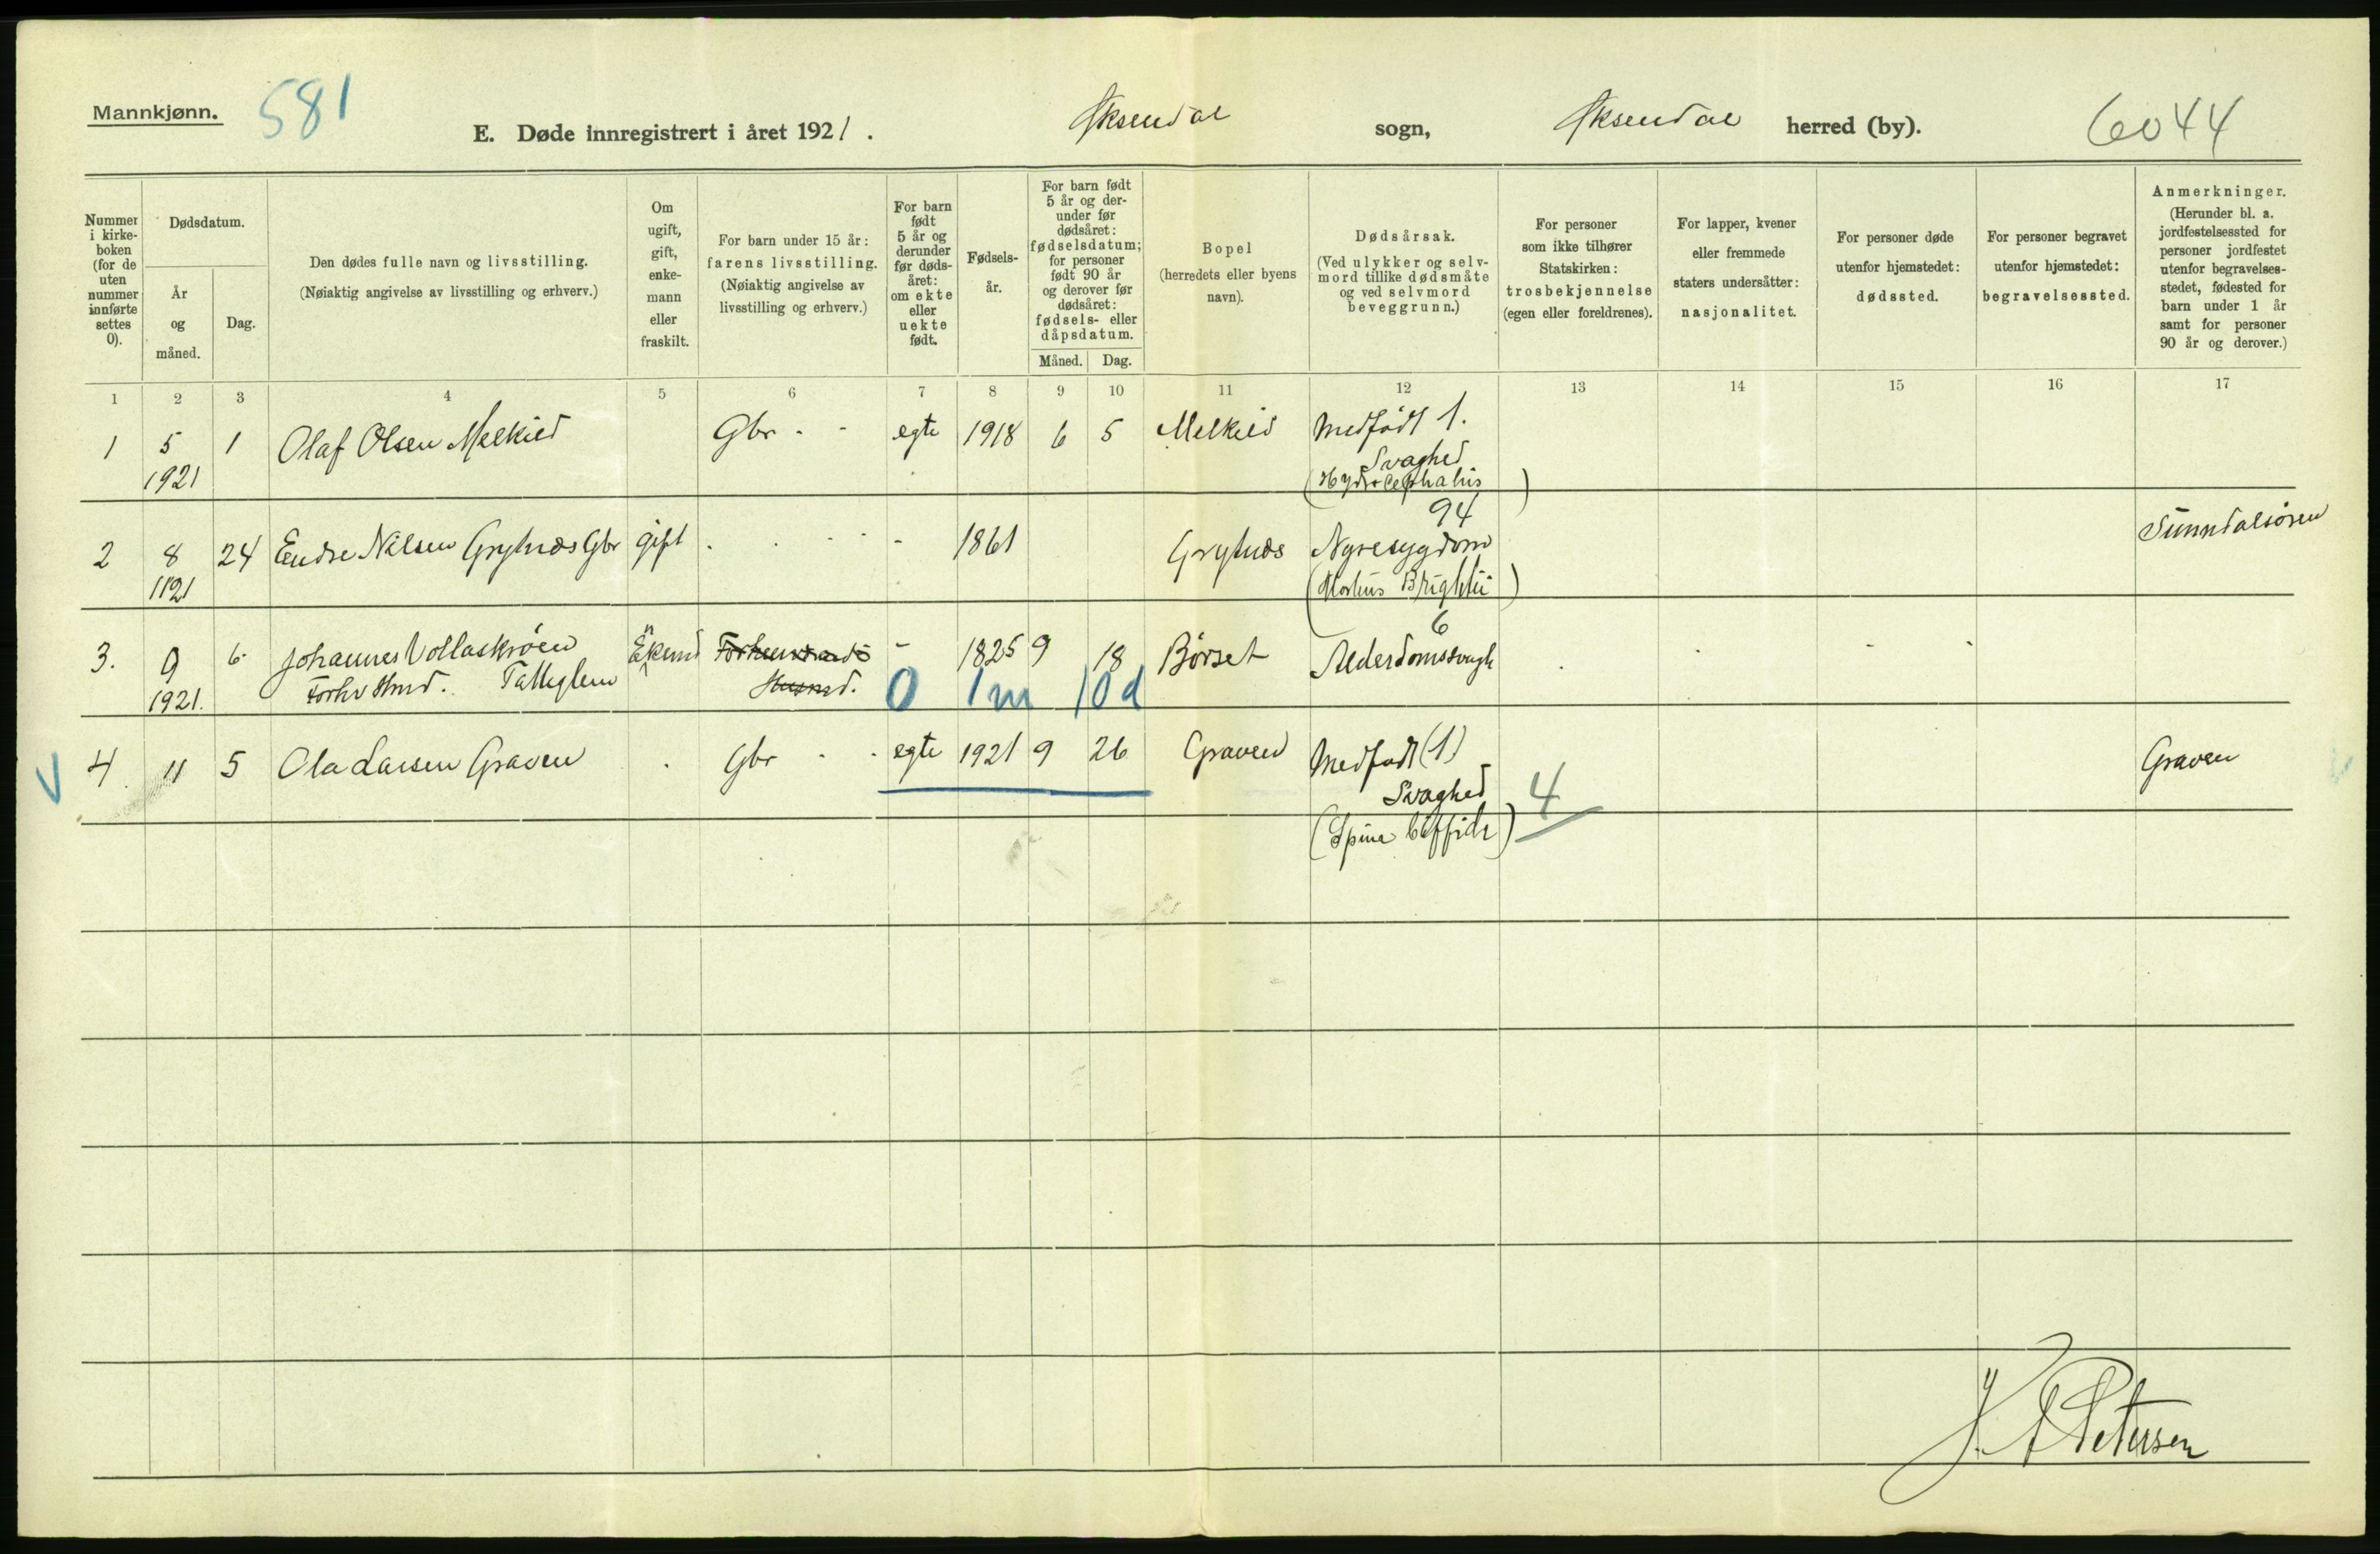 Mannkjønn.
581
E. Døde innregistrert i året 1921.
Øksendal sogn,
Øksendal herred (by).
6044
Nummer i kirke-boken (for de uten nummer innførte settes 0).
Dødsdatum.
År og måned.
Dag.
Den dødes fulle navn og livsstilling.
(Nøiaktig angivelse av livsstilling og erhverv.)
Om ugift, gift, enke-mann eller fraskilt.
For barn under 15 år: farens livsstilling.
(Nøiaktig angivelse av livsstilling og erhverv.)
For barn født 5 år og derunder før døds-året: om ekte eller uekte født.
Fødsels-år.
For barn født 5 år og der-under før dødsåret: fødselsdatum; for personer født 90 år og derover før dødsåret: fødsels- eller dåpsdatum.
Måned. Dag.
Bopel
(herredets eller byens navn).
Dødsårsak.
(Ved ulykker og selv-mord tillike dødsmåte og ved selvmord beveggrunn.)
For personer som ikke tilhører Statskirken: trosbekjennelse (egen eller foreldrenes).
For lapper, kvener eller fremmede staters undersåtter: nasjonalitet.
For personer døde utenfor hjemstedet: dødssted.
For personer begravet utenfor hjemstedet: begravelsessted.
Anmerkninger.
(Herunder bl. a. jordfestelsessted for personer jordfestet utenfor begravelses-stedet, fødested for barn under 1 år samt for personer 90 år og derover.)
1 2 3 4 5 6 7 8 9 10 11 12 13 14 15 16 17
1 5 1921 1 Olaf Olsen Melkild Gbr - - egte 1918 6 5 Melkild Medfødt 1. Svaghed (Hydrocephalus)
94
2 8 1921 24 Endre Nilsen Grytnæs Gbr gift 1861 Grytnæs Nyresygdom (Morbus Brightii) Sunndalsøren
6
3. 9 1921. 6 Johannes Vollaskrøen Forhv Hmd. Enkemd Husmd. - 1825 9 18 Børset Alderdomssvagh
0 1m 10d
V 4. 11 5 Ola Larsen Graven Gbr - - egte 1921 9 26 Graven Medfødt (1) Svaghed (Spina biffida) 4 Graven
Petersen